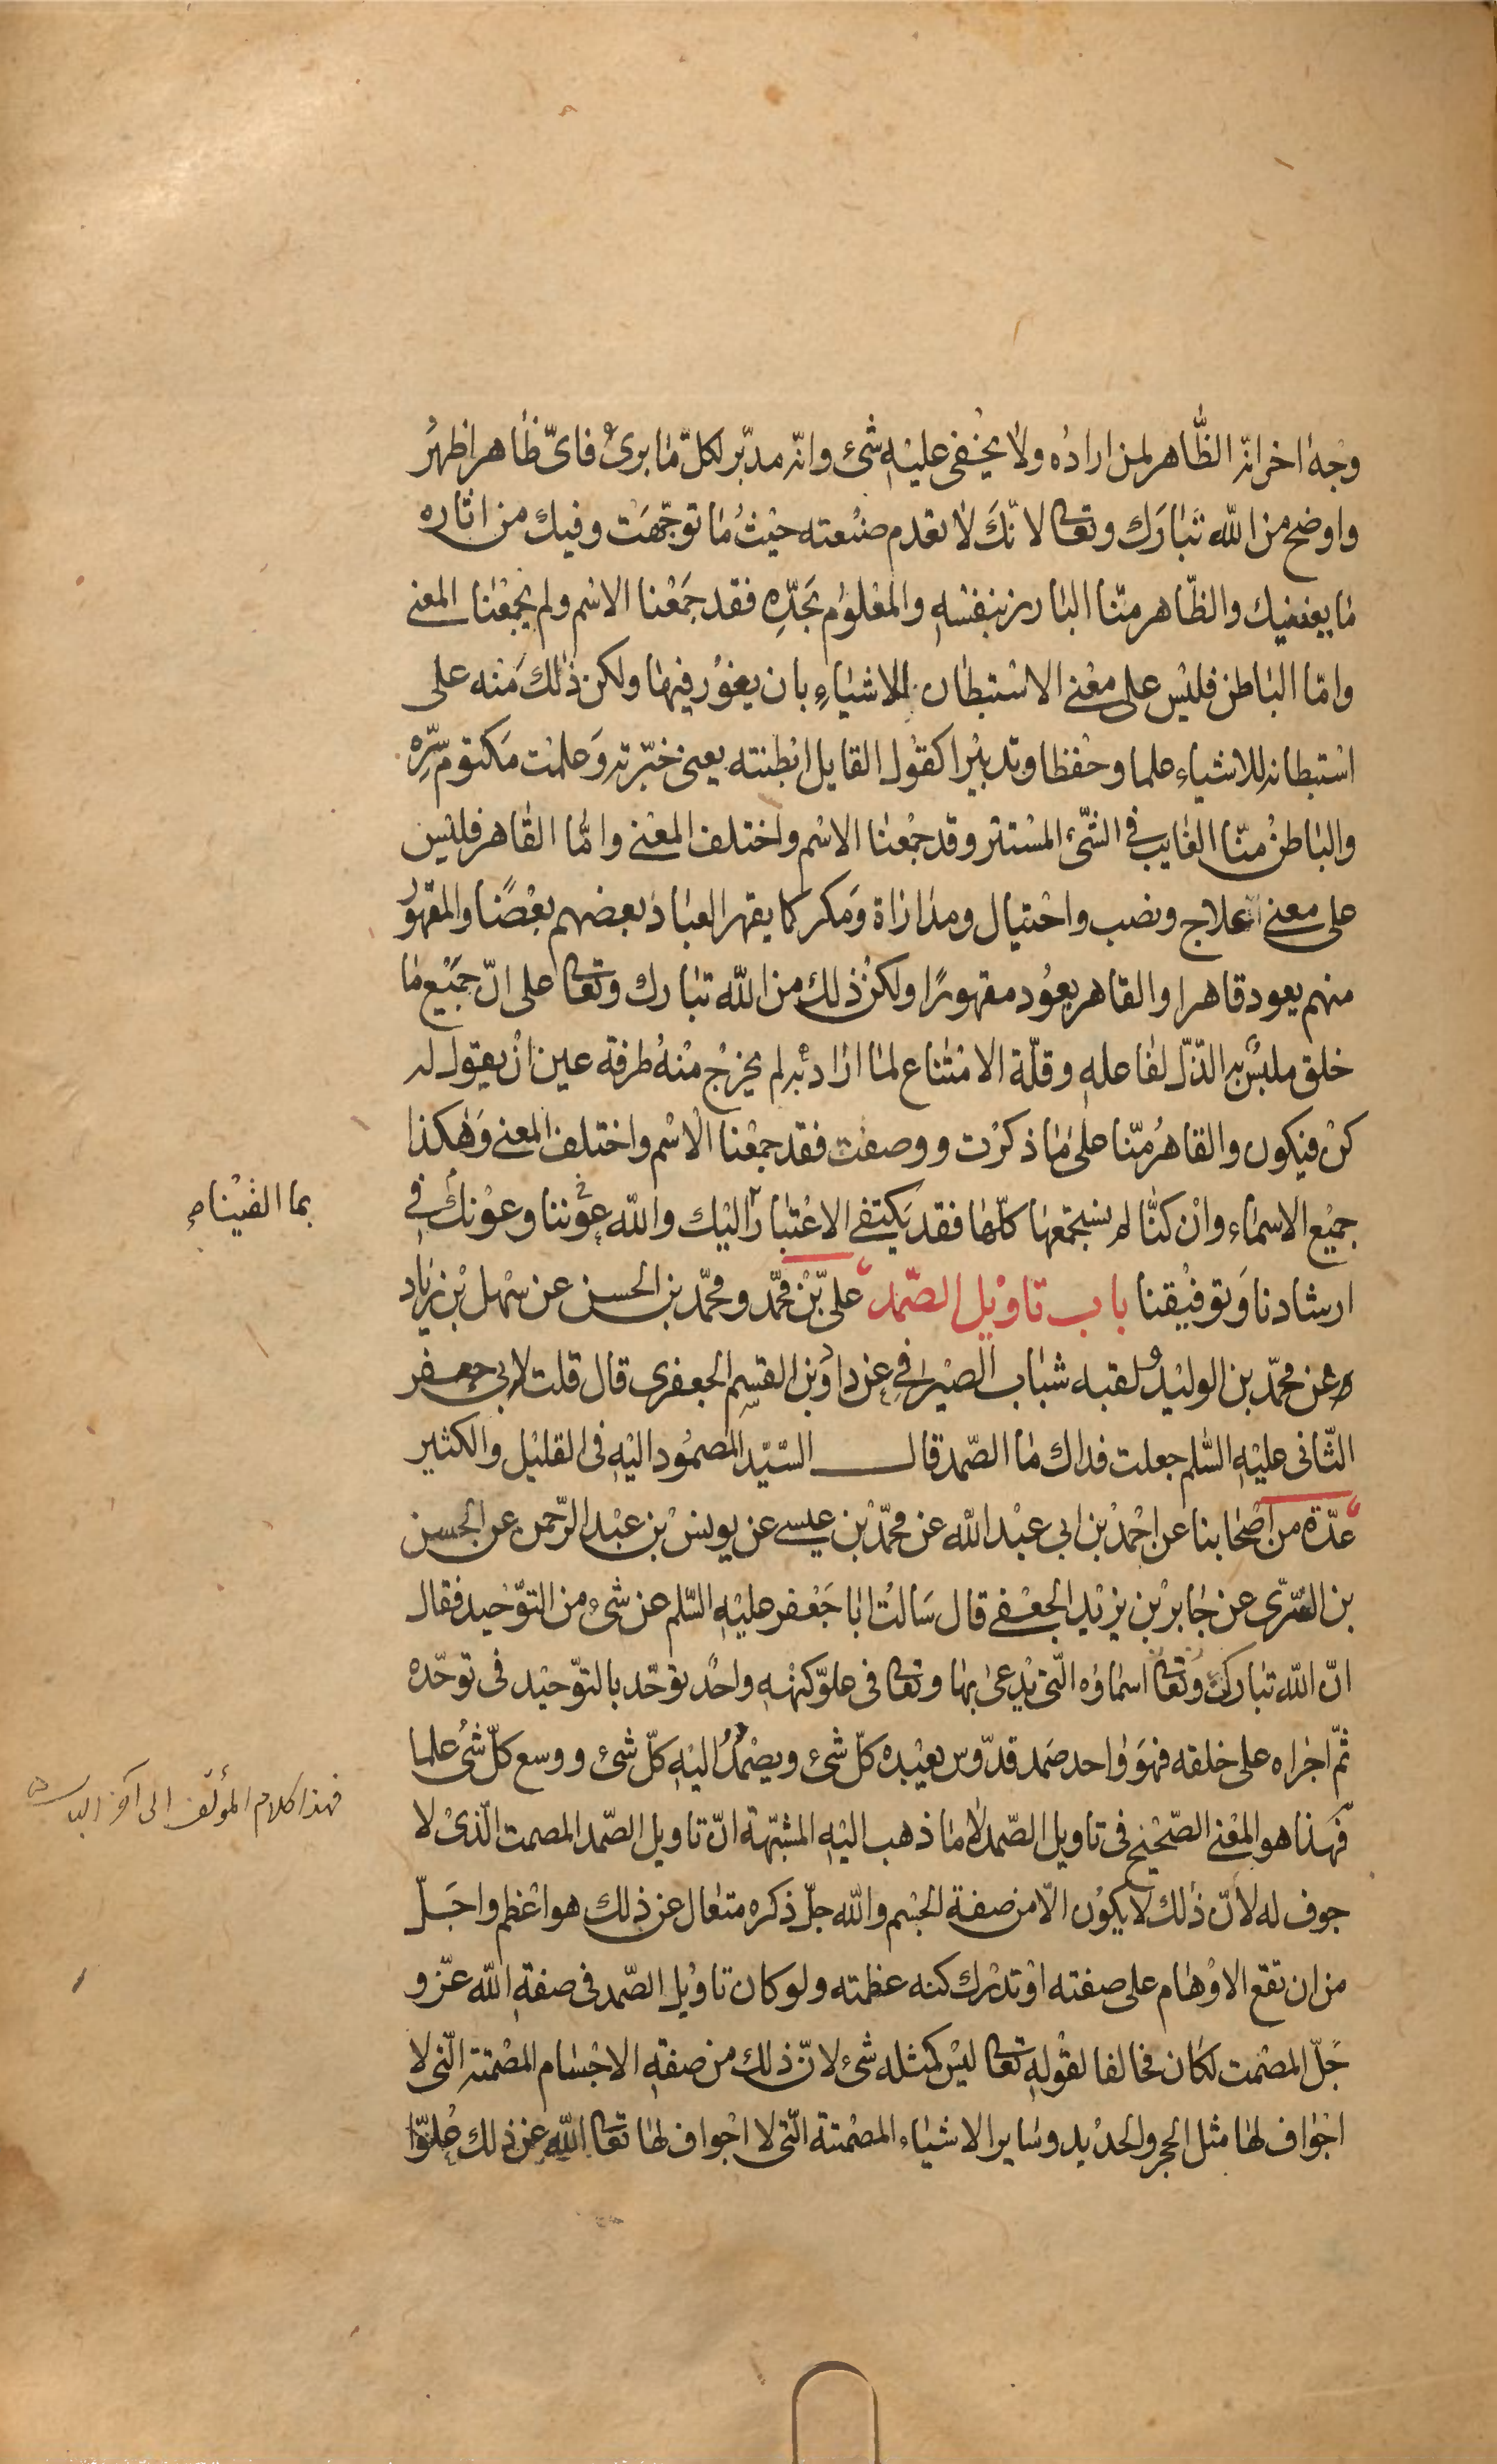 وجه اخر انه الظّاهر لمن اراده ولا يخفى عليه شئ وانّه مدبّر لكلّ ما برئ فاىّ ظاهر اظهر
واوضح من الله تبارك وتعا لانّك لا تعدم صنعته حيث ما توجّهت وفيك من اثاره
ما يغنيك والظّاهر منّا البارز بنفسه والمعلوم بحدّه فقد جمعنا الاسم ولم يجمعنا المعنى
وامّا الباطن فليس على معنى الاستبطان للاشياء بان يغور فيها ولكن ذلك منه على
استبطانه للاشياء علما وحفظا وتدبيرا كقول القايل ابطنته يعنى خبّرته وعلمت مكتوم سرّه
والباطن منّا الغايب فى الشّئ المستتر وقد جمعنا الاسم واختلف المعنى وامّا القاهر فليس
على معنى علاج ونصب واحتيال ومداراة ومكر كما يقهر العباد بعضهم بعضًا والمقهور
منهم يعود قاهرا والقاهر يعود مقهورًا ولكن ذلك من الله تبارك وتعا على انّ جميع ما
خلق ملبّس به الذّلّ لفاعله وقلّة الامتناع لما اراد به لم يخرج منه طرفة عين ان يقول له
كن فيكون والقاهر منّا على ما ذكرت ووصفت فقد جمعنا الاسم واختلف المعنى وهكذا
جميع الاسماء وان كنّا لم نستجمعها كلّها فقد يكتفى الاعتبار اليك والله عوننا وعونك فى
بما القيناه
ارشادنا وتوفيقنا باب تاويل الصّمد علىّ بن محمّد ومحمّد بن الحسن عن سهل بن زياد
عن محمّد بن الوليد ولقبه شباب الصيرفى عن داود بن القسم الجعفرى قال قلت لابى جعفر
الثّانى عليه السّلم جعلت فداك ما الصّمد قال السّيّد المصمود اليه فى القليل والكثير
عدّة من اصحابنا عن احمد بن ابى عبد الله عن محمّد بن عيسى عن يونس بن عبد الرّحمن عن الحسن
بن السّرّى عن جابر بن يزيد الجعفى قال سالت ابا جعفر عليه السّلم عن شئ من التوّحيد فقال
انّ الله تباركت وتعا اسماؤه الّتى يدعى بها وتعا فى علوّ كنهه واحد توحّد بالتوّحيد فى توحّده
ثمّ اجراه على خلقه فهو واحد صمد قدّوس يعبده كلّ شئ ويصمد اليه كلّ شئ ووسع كلّ شئ علما
فهذا كلام المؤلف الى آخر الباب
فهذا هو المعنى الصّحيح فى تاويل الصّمد لا ما ذهب اليه المشبّهة انّ تاويل الصّمد المصمت الّذى لا
جوف له لانّ ذلك لا يكون الّا من صفة الجسم والله جلّ ذكره متعال عن ذلك هو اعظم واجلّ
من ان تقع الاوهام على صفته او تدرك كنه عظمته ولو كان تاويل الصّمد فى صفة الله عزّ و
جلّ المصمت لكان مخالفا لقوله تعا ليس كمثله شئ لانّ ذلك من صفة الاجسام المصمتة الّتى لا
اجواف لها مثل الحجر والحديد وساير الاشياء المصمتة الّتى لا اجواف لها تعا الله عن ذلك علوّا